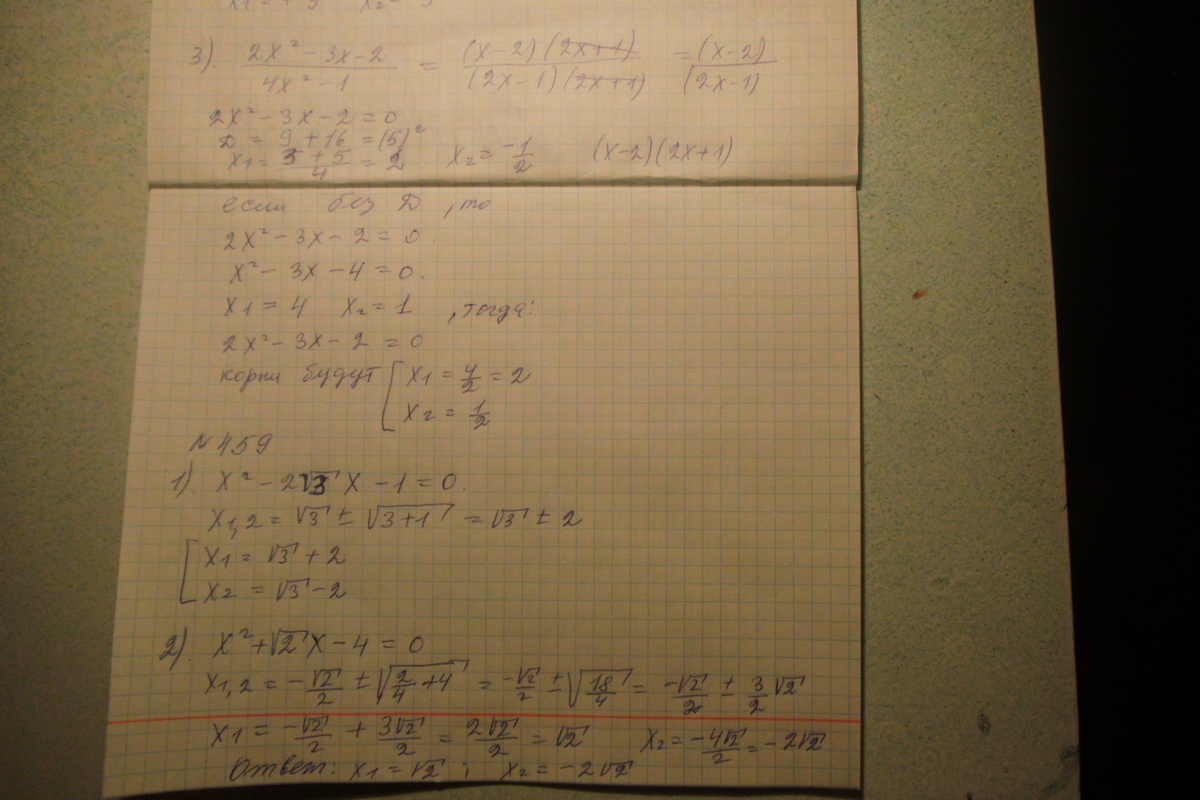 3). 2x² - 3x - 2 / 4x² - 1 = (x-2)(2x+1) / (2x-1)(2x+1) = (x-2) / (2x-1)
2x² - 3x - 2 = 0
D = 9 + 16 = (5)²
x1 = 3 + 5 / 4 = 2 x2 = -1/2 (x-2)(2x+1)
если без D, то
2x² - 3x - 2 = 0.
x² - 3x - 4 = 0.
x1 = 4 x2 = 1 , тогда:
2x² - 3x - 2 = 0
корни будут [ x1 = 4/2 = 2
x2 = 1/2
N 459
1). x² - 2√3 x - 1 = 0.
x1,2 = √3 ± √(3+1) = √3 ± 2
[ x1 = √3 + 2
x2 = √3 - 2
2). x² + √2 x - 4 = 0
x1,2 = -√2/2 ± √(2/4 + 4) = -√2/2 ± √(18/4) = -√2/2 ± 3/2 √2
x1 = -√2/2 + 3√2/2 = 2√2/2 = √2 x2 = -4√2/2 = -2√2
Ответ: x1 = √2 ; x2 = -2√2